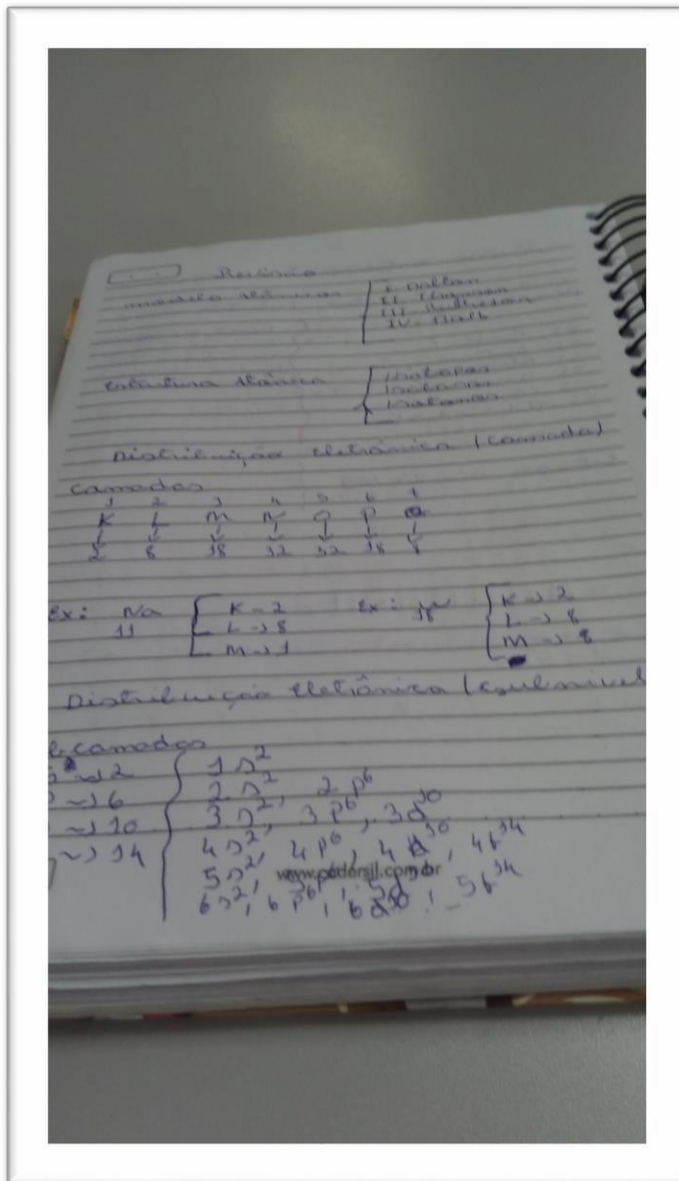 Revisão
modelo atômicos { I - Dalton
II - Thomson
III - Rutherford
IV - Bohr
Estrutura Atômica { Isótopos
Isótonos
Distribuição Eletrônica (camada)
camadas
1 2 3 4 5 6
K L M N O P Q
↓ ↓ ↓ ↓ ↓ ↓ ↓
2 8 18 32 32 18 8
Ex: Na 11 { K - 2
L → 8
M → 1
Ex: 18 { K → 2
L → 8
M → 8
Distribuição Eletrônica (subnível
bcamadas
~> 2
~> 6
~> 10
~> 14
{ 1s²
2s², 2p⁶
3s², 3p⁶, 3d¹⁰
4s², 4p⁶, 4d¹⁰, 4f¹⁴
5s², 5p⁶, 5d, 5f¹⁴
6s², 6p⁶, 6d¹⁰
www.pedorsil.com.br